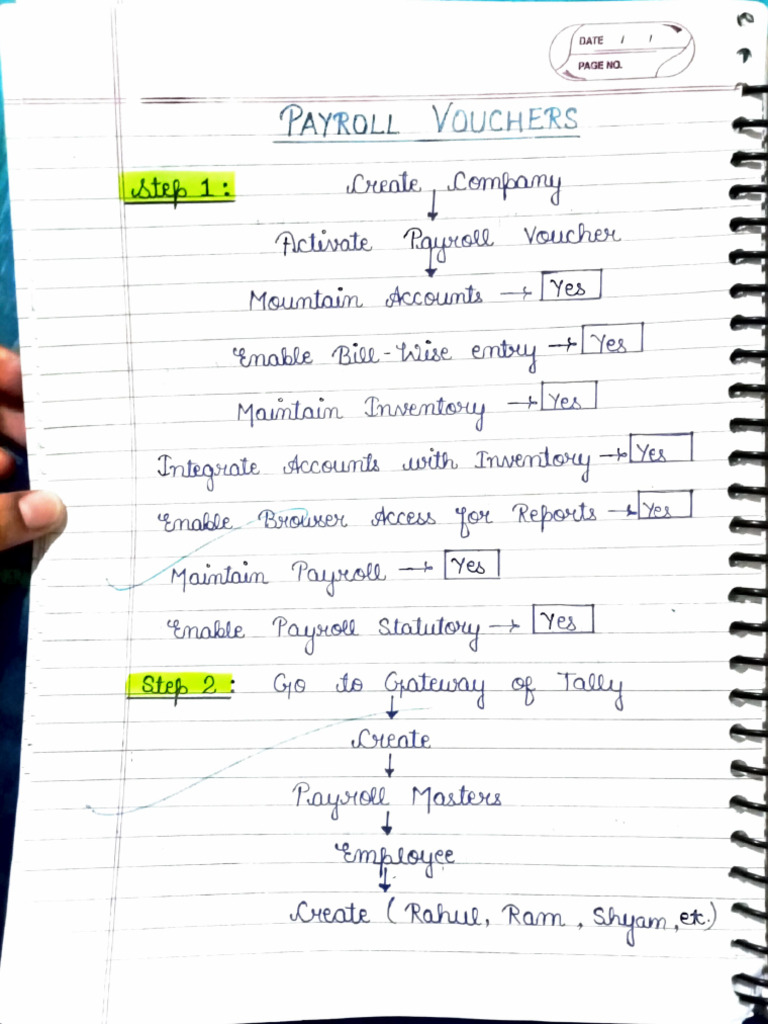 DATE / /
PAGE NO.
PAYROLL VOUCHERS
Step 1: Create Company
↓
Activate Payroll Voucher
↓
Mountain Accounts → Yes
Enable Bill-Wise entry → Yes
Maintain Inventory → Yes
Integrate Accounts with Inventory → Yes
Enable Browser Access for Reports → Yes
Maintain Payroll → Yes
Enable Payroll Statutory → Yes
Step 2: Go to Gateway of Tally
↓
Create
↓
Payroll Masters
↓
Employee
↓
Create (Rahul, Ram, Shyam, etc.)